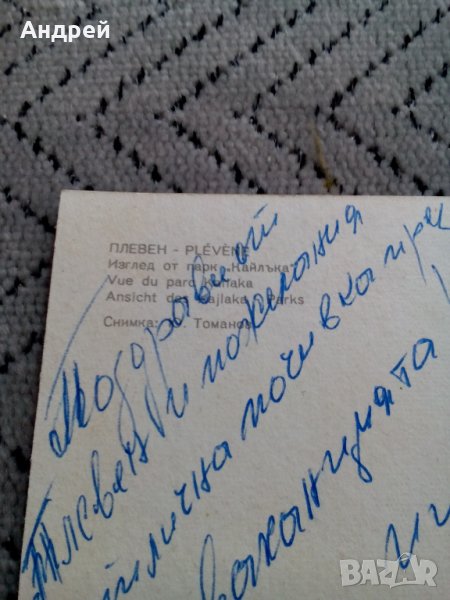 Андрей
ПЛЕВЕН - PLÉVÈNE
Изглед от парк „Кайлъка"
Vue du parc Kaïlaka
Ansicht des Kajlaka - Parks
Снимка: Томанов
Поздрави от
Плевен и пожелания
отлична почивка пре
ваканцията
и
BAZAR.bg